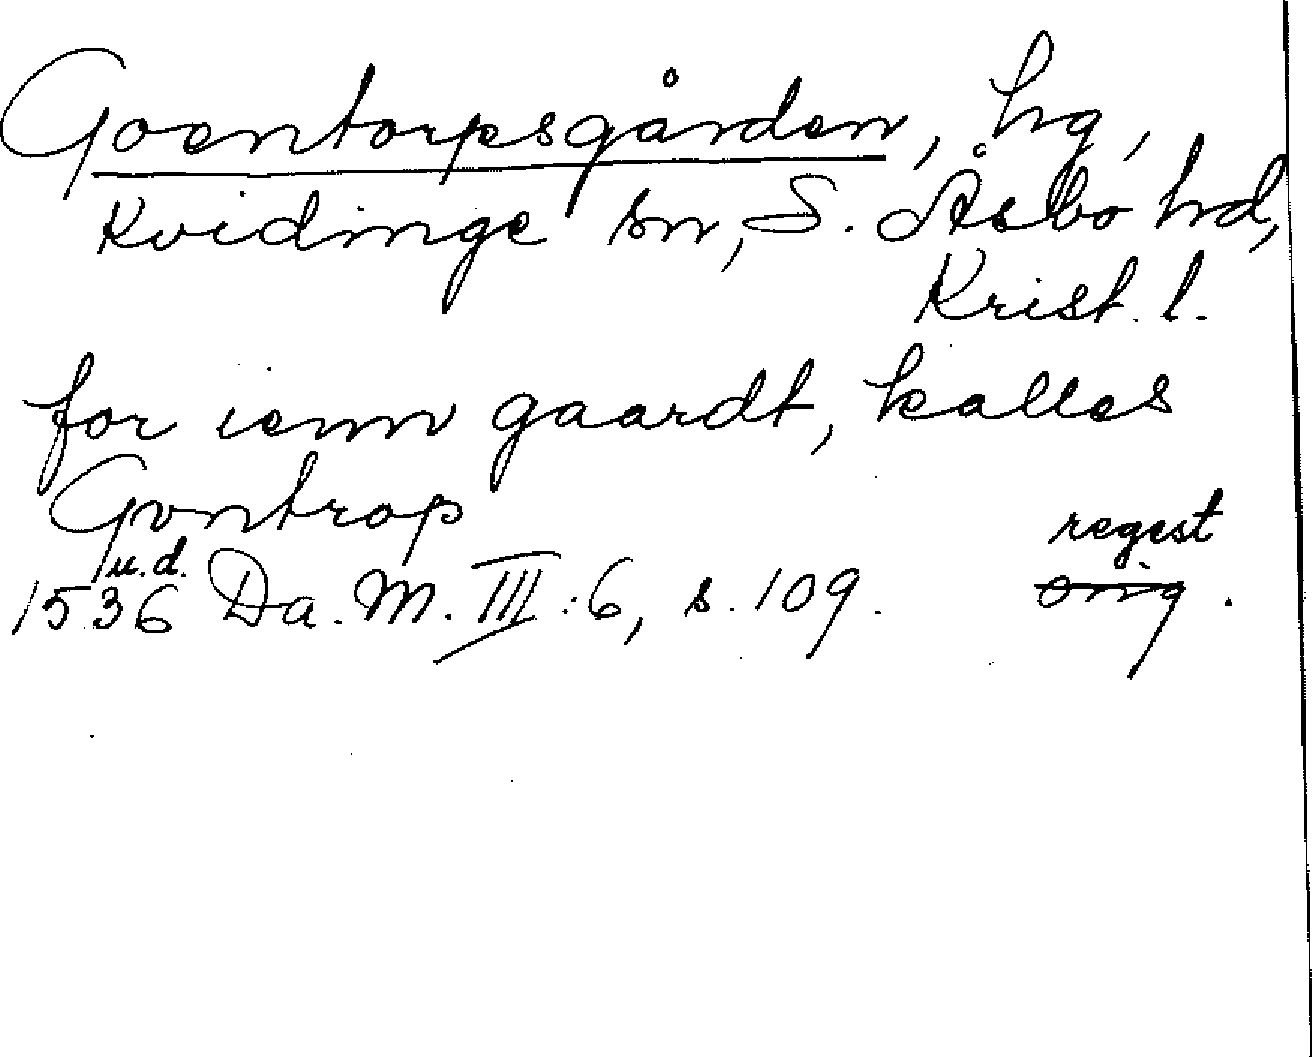 Goentorpsgården, hg,
Kvidinge sn, S. Åsbo hd,
Krist. l.
for ienn gaardt, kalles
Gvntrop
1536 u.d. Da. M. III:6, s. 109. regest
orig.